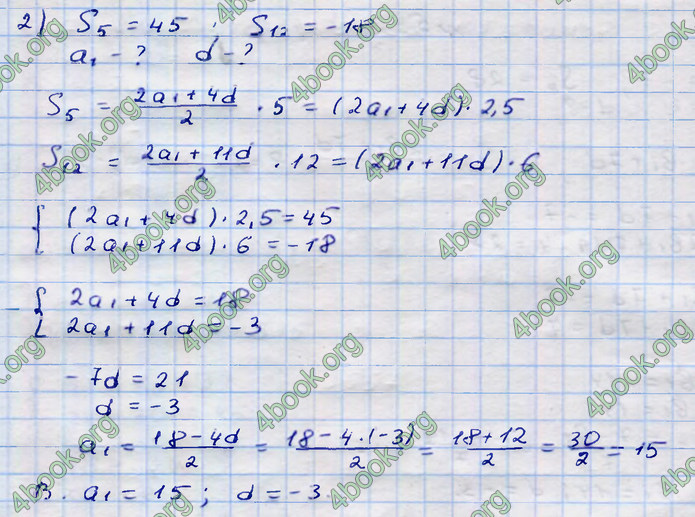 2) S₅ = 45 ; S₁₂ = -18
a₁ - ? d - ?
S₅ = (2a₁ + 4d)/2 · 5 = (2a₁ + 4d) · 2,5
S₁₂ = (2a₁ + 11d)/2 · 12 = (2a₁ + 11d) · 6
{ (2a₁ + 4d) · 2,5 = 45
(2a₁ + 11d) · 6 = -18
- { 2a₁ + 4d = 18
2a₁ + 11d = -3
-7d = 21
d = -3
a₁ = (18 - 4d)/2 = (18 - 4 · (-3))/2 = (18 + 12)/2 = 30/2 = 15
В. a₁ = 15 ; d = -3
4book.org